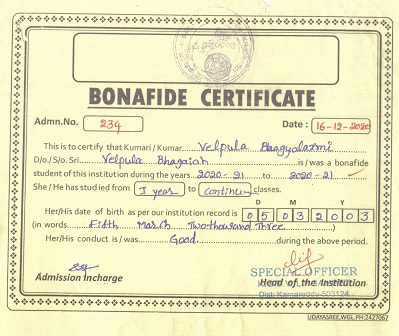 BONAFIDE CERTIFICATE
Admn.No. 234 Date : 16-12-2020
This is to certify that Kumari / Kumar Velpula Bhagyalaxmi
D/o./S/o. Sri. Velpula Bhagaiah is / was a bonafide
student of this institution during the years 2020-21 to 2020-21
She / He has studied from I year to Continu classes.
D M Y
Her/His date of birth as per our institution record is 05 03 2003
(in words Fifth March Two thousand Three )
Her/His conduct is / was Good. during the above period.
SPECIAL OFFICER
Admission Incharge Head of the Institution
Dist: Kamareddy-503124
UDAYASREE,WGL.PH:2427067